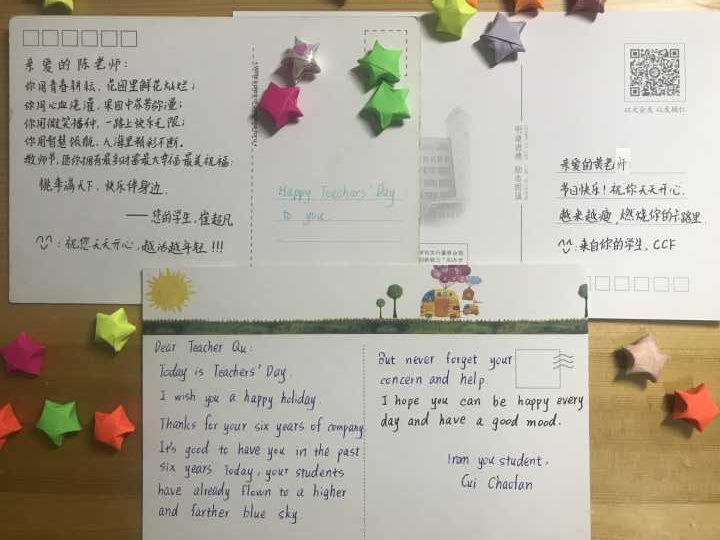 亲爱的陈老师:
你用青春耕耘，花园里鲜花灿烂;
你用心血浇灌，果园中芬芳弥漫;
你用微笑播种，一路上快乐无限;
你用智慧领航，人海里精彩不断。
教师节，愿你拥有最多财富最大幸福最美祝福:
桃李满天下，快乐伴身边.
——您的学生，崔超凡
^^:祝您天天开心，越活越年轻!!!
Happy Teachers' Day
to you.
以文会友 以友辅仁
亲爱的黄老师
节日快乐!祝你天天开心.
越来越瘦，燃烧你的卡路里.
^^:来自你的学生，CCF
Dear Teacher Qu:
Today is Teachers' Day.
I wish you a happy holiday.
Thanks for your six years of company.
It's good to have you in the past
six years. Today, your students
have already flown to a higher
and farther blue sky.
But never forget your
concern and help.
I hope you can be happy every
day and have a good mood.
From you student,
Cui Chaofan